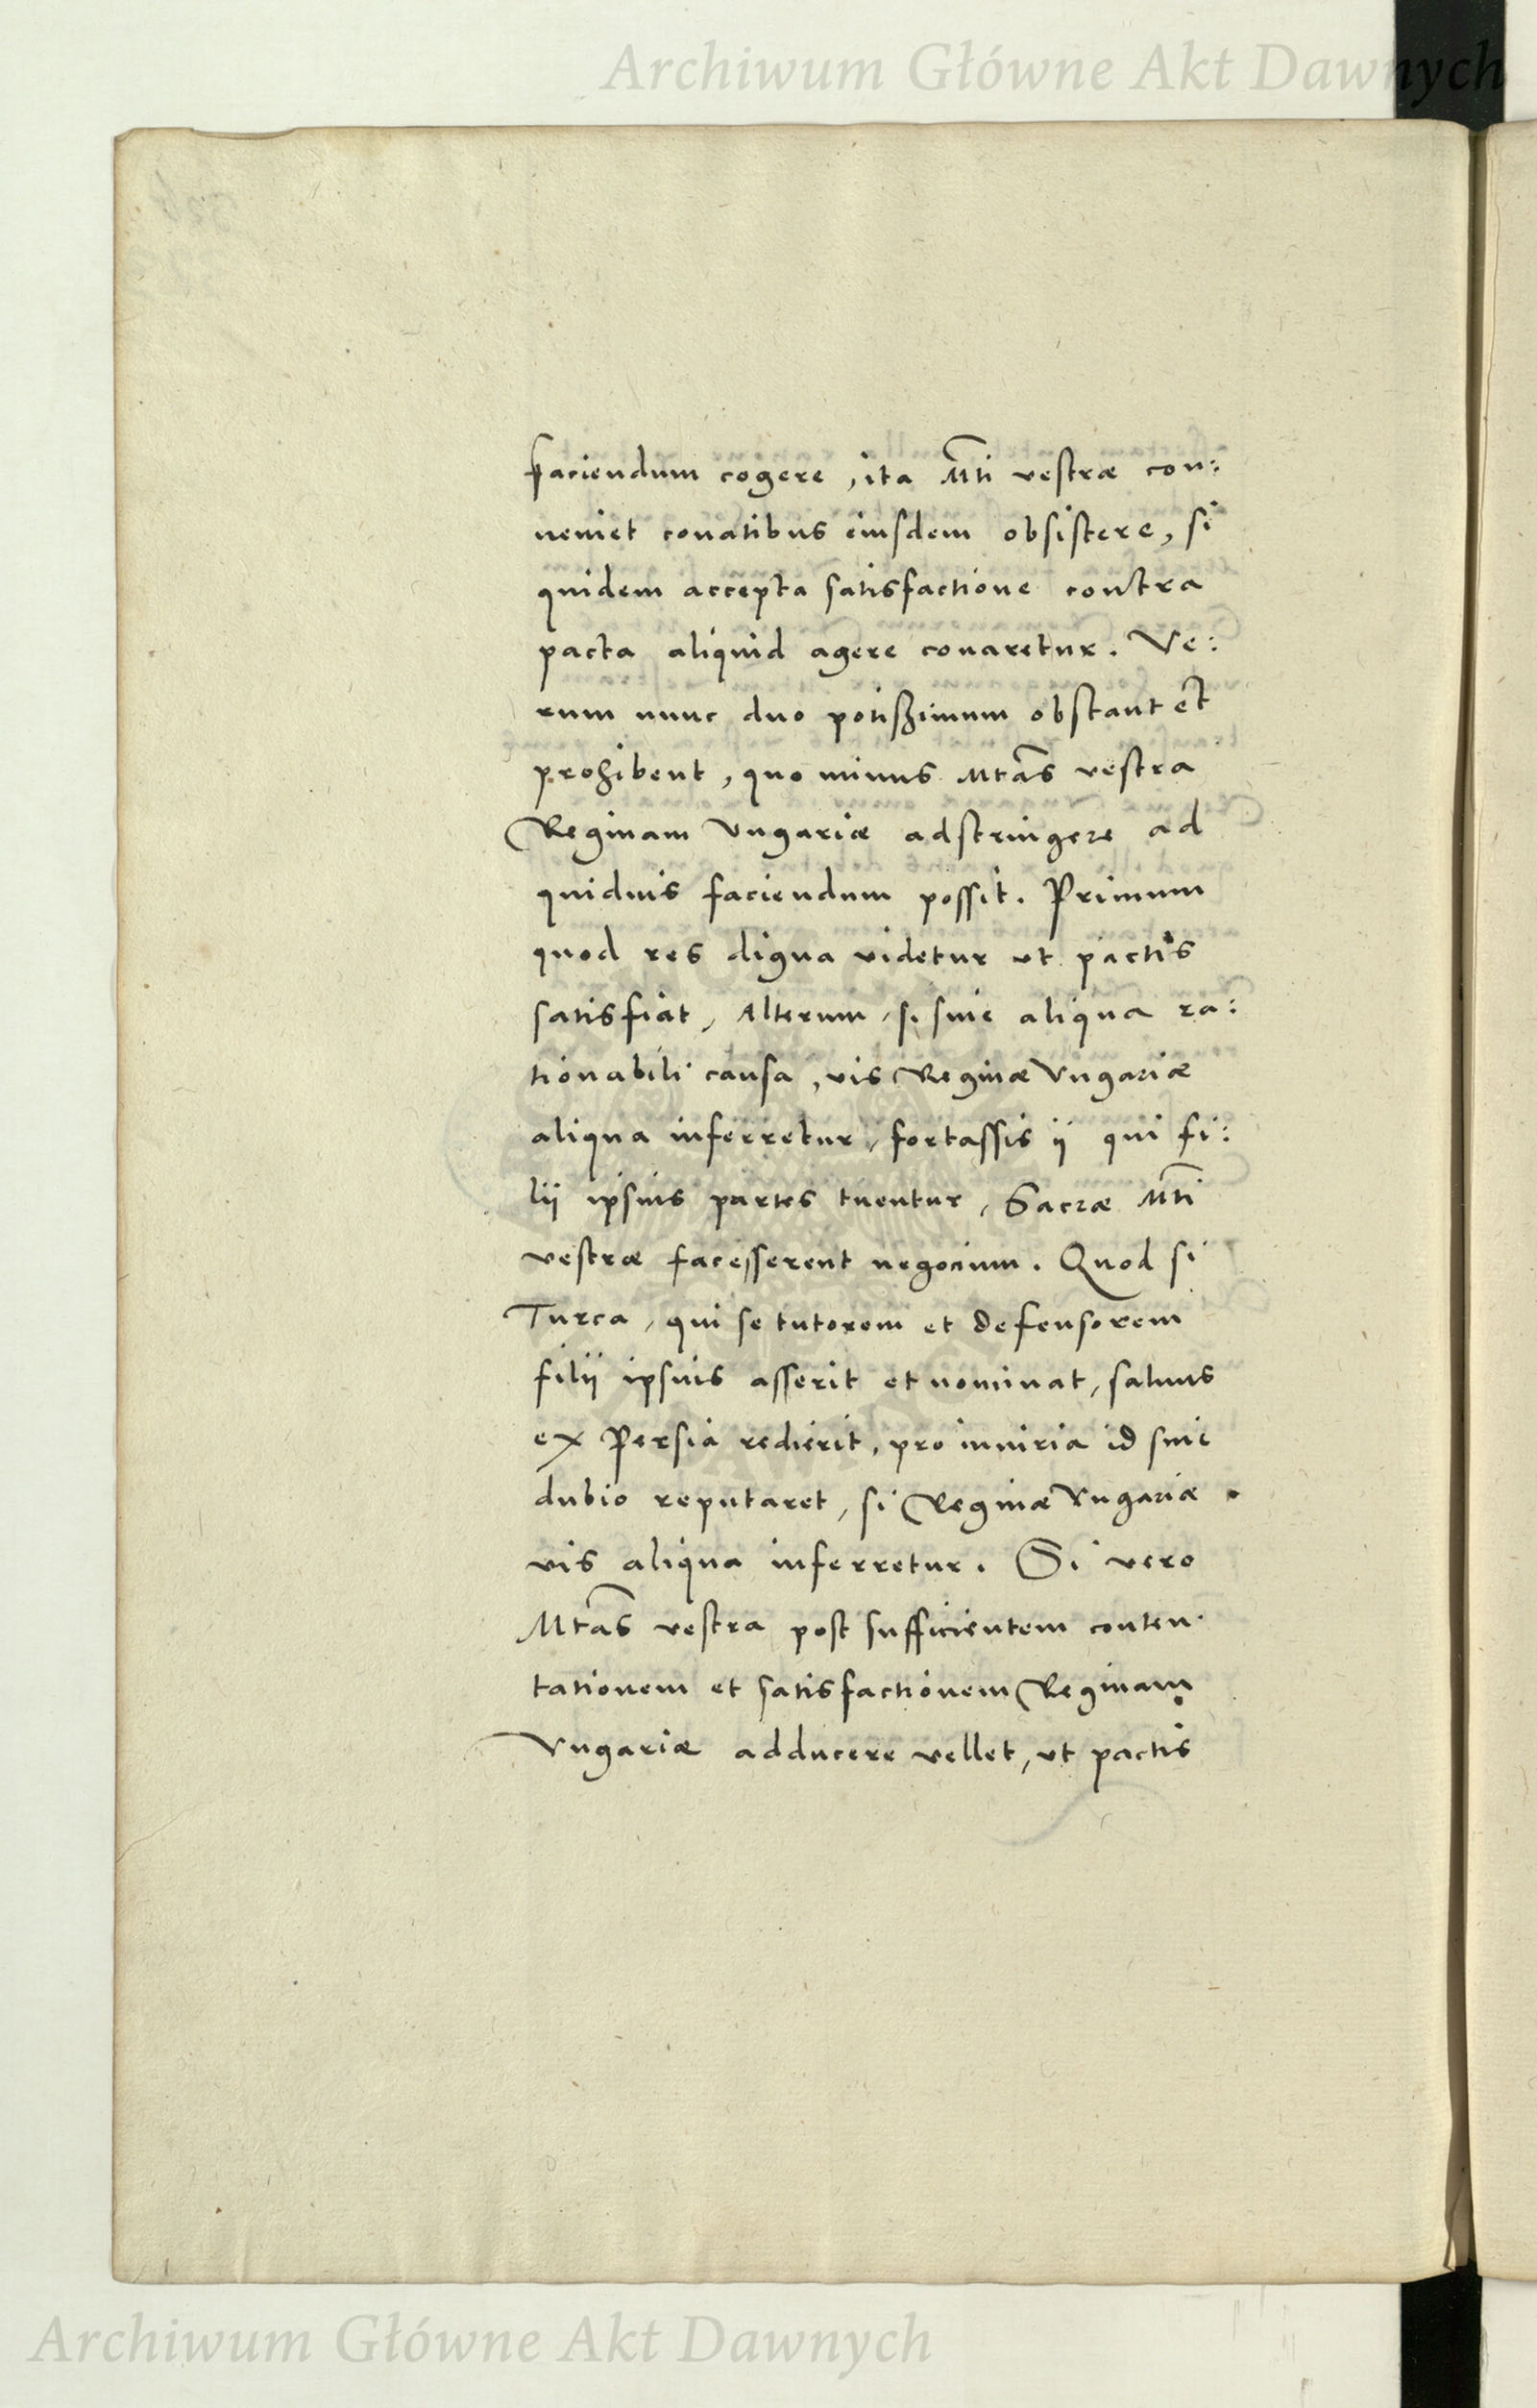 Archiwum Główne Akt Dawnych
faciendum cogere, ita Mti vestræ con:
ueniet conatibus eiusdem obsistere, si
quidem accepta satisfactione contra
pacta aliquid agere conaretur. Ve:
rum nunc duo potißimum obstant et
prohibent, quo minus Mtas vestra
Reginam Vngariæ adstringere ad
quiduis faciendum possit. Primum
quod res digna videtur vt pactis
satisfiat, Alterum, si sine aliqua ra:
tionabili causa, vis Reginæ Vngariæ
aliqua inferretur, fortassis ij qui fi:
lij ipsius partes tuentur, Sacræ Mti
vestræ facesserent negocium. Quod si
Turca, qui se tutorem et defensorem
filij ipsius asserit et nominat, saluus
ex Persia redierit, pro iniuria id sine
dubio reputaret, si Reginæ Vngariæ
vis aliqua inferretur. Si vero
Mtas vestra post sufficientem conten
tationem et satisfactionem Reginam
Vngariæ adducere vellet, vt pactis
Archiwum Główne Akt Dawnych